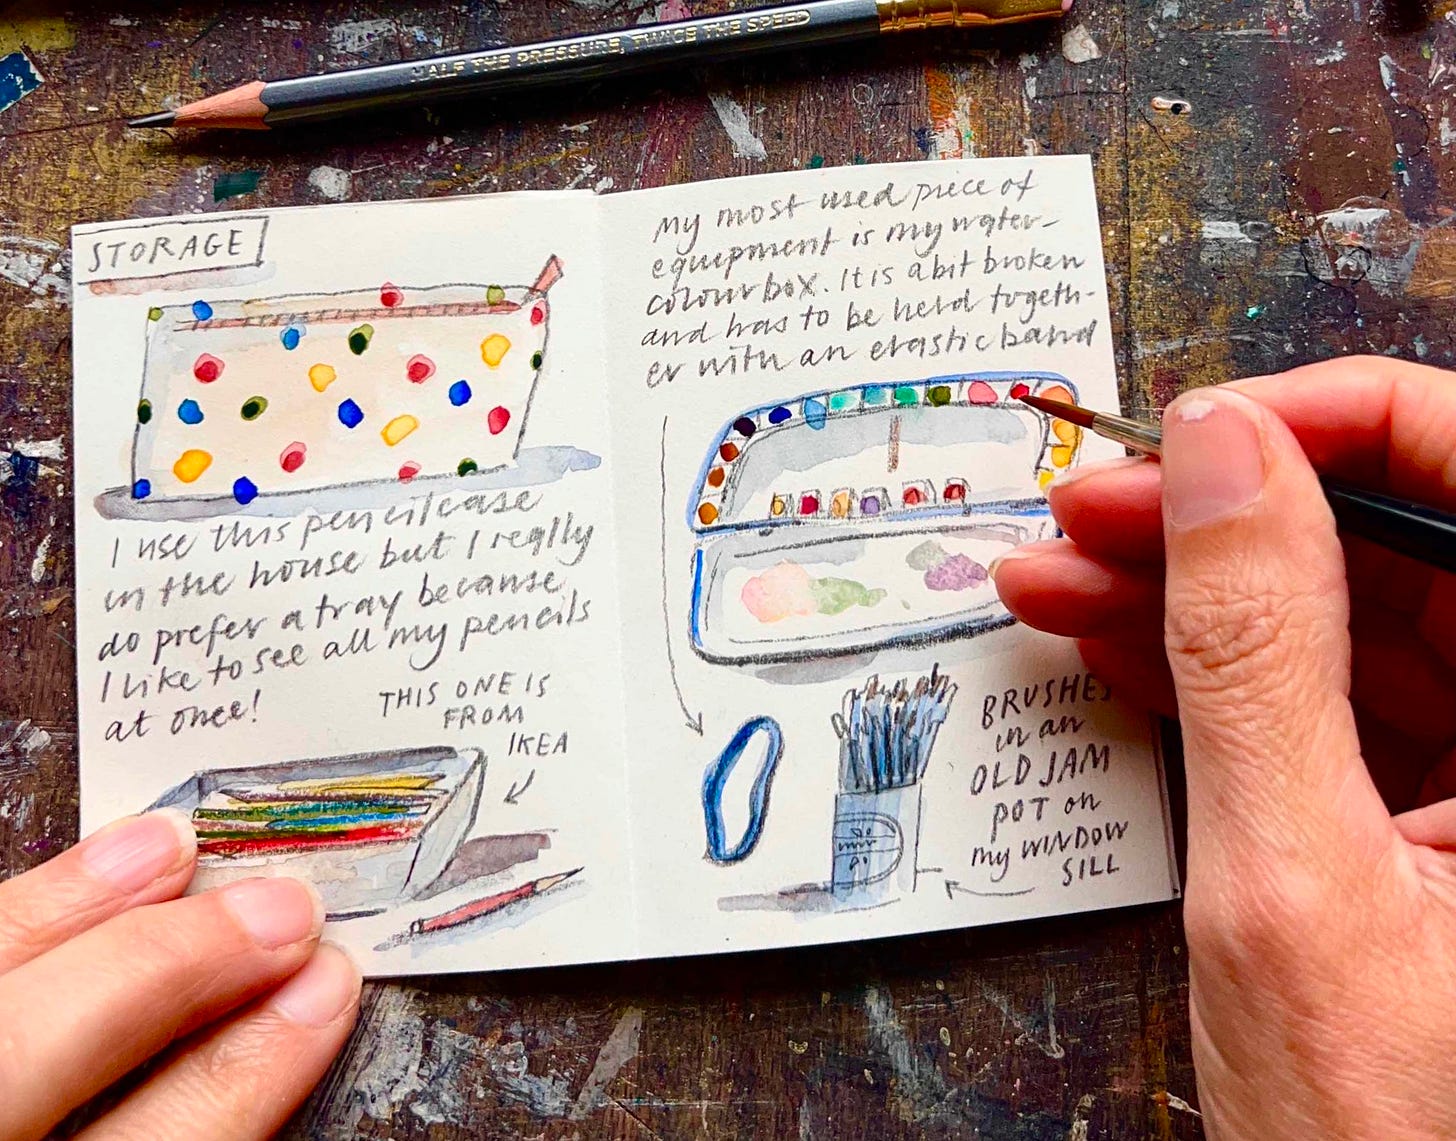 HALF THE PRESSURE, TWICE THE SPEED
STORAGE
I use this pencilcase
in the house but I really
do prefer a tray because
I like to see all my pencils
at once!
THIS ONE IS
FROM
IKEA
My most used piece of
equipment is my water-
colour box. It is a bit broken
and has to be held togeth-
er with an elastic band
BRUSHES
in an
OLD JAM
POT on
my WINDOW
SILL